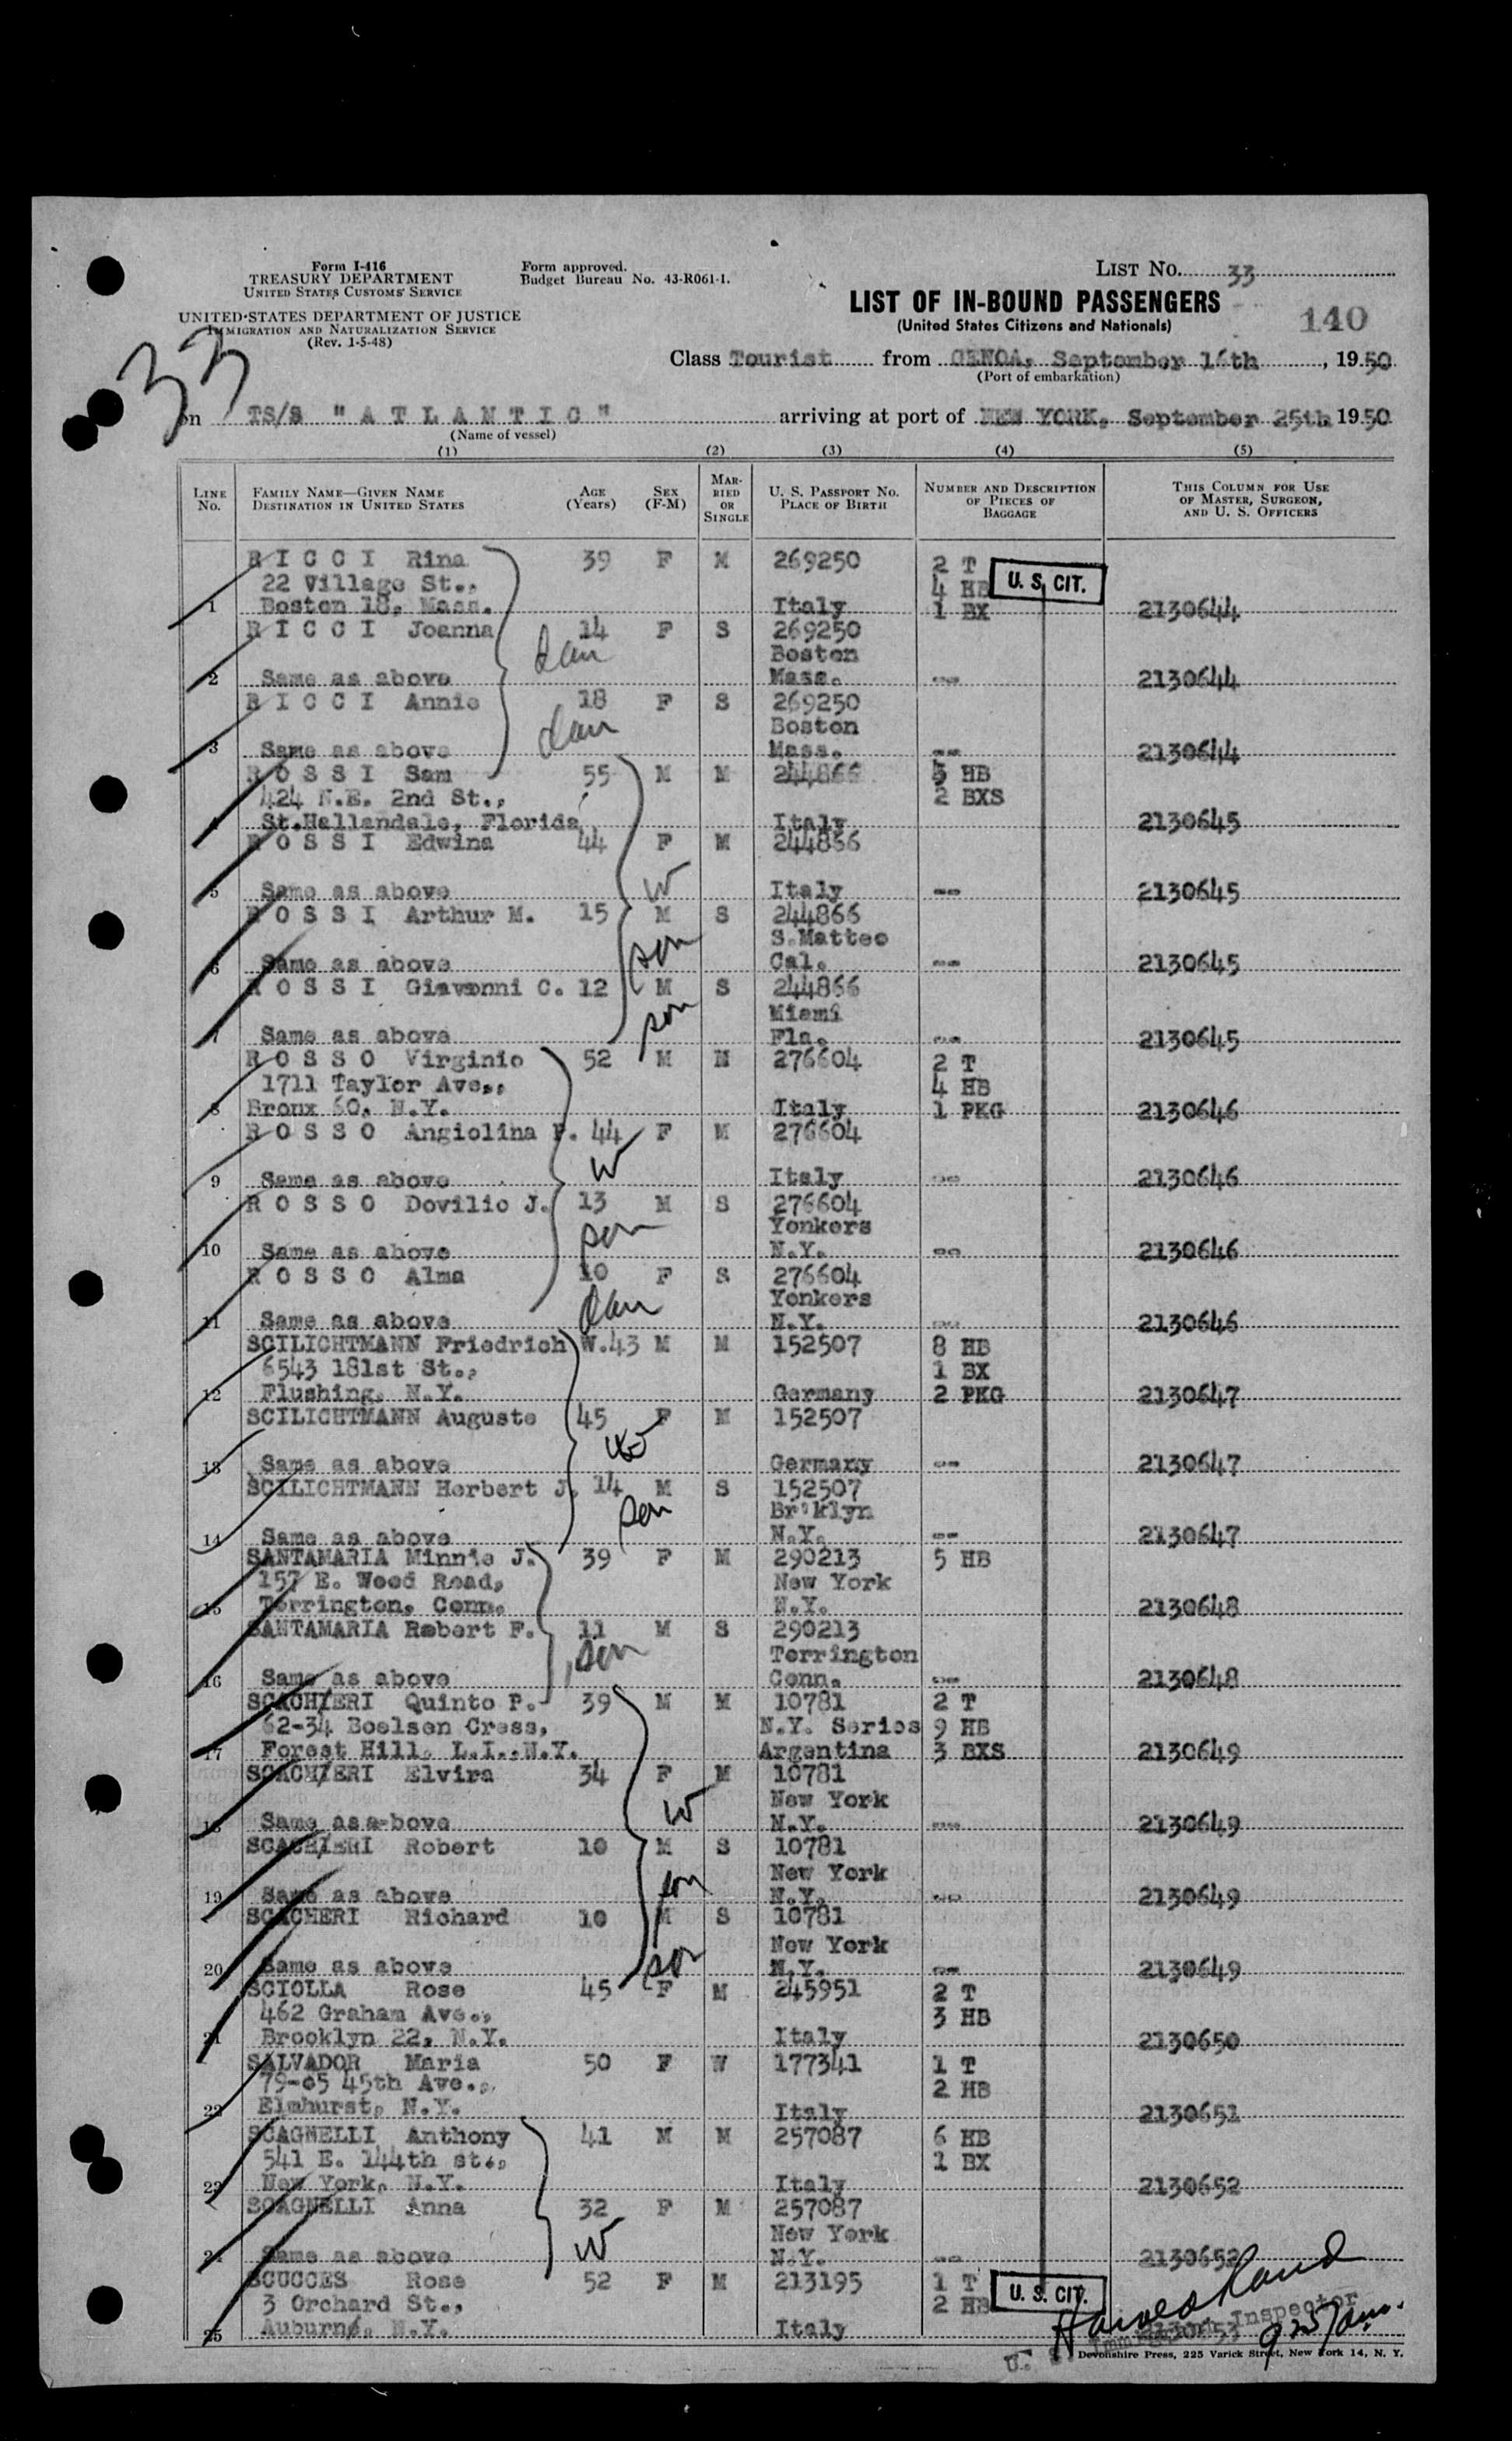 Form I-416
TREASURY DEPARTMENT
UNITED STATES CUSTOMS SERVICE
UNITED STATES DEPARTMENT OF JUSTICE
IMMIGRATION AND NATURALIZATION SERVICE
(Rev. 1-5-48)
Form approved.
Budget Bureau No. 43-R061-1.
LIST NO. 33
LIST OF IN-BOUND PASSENGERS
(United States Citizens and Nationals)
140
33
Class Tourist from GENOA, September 16th, 1950
(Port of embarkation)
on TS/S "ATLANTIC" arriving at port of NEW YORK, September 25th 1950
(Name of vessel)
(1) (2) (3) (4) (5)
LINE NO. FAMILY NAME—GIVEN NAME DESTINATION IN UNITED STATES AGE (Years) SEX (F-M) MARRIED OR SINGLE U. S. PASSPORT NO. PLACE OF BIRTH NUMBER AND DESCRIPTION OF PIECES OF BAGGAGE THIS COLUMN FOR USE OF MASTER, SURGEON, AND U. S. OFFICERS
R I C C I Rina 39 F M 269250 2 T
22 Village St., 4 HB U. S. CIT.
1 Boston 18, Mass. Italy 1 BX 2130644
R I C C I Joanna 14 F S 269250
dau Boston
2 Same as above Mass. -- 2130644
R I C C I Annie 18 F S 269250
dau Boston
3 Same as above Mass. -- 2130644
R O S S I Sam 55 M M 244866 5 HB
424 N.E. 2nd St., 2 BXS
4 St.Hallandale, Florida Italy 2130645
R O S S I Edwina 44 F M 244866
w
5 Same as above Italy -- 2130645
R O S S I Arthur M. 15 M S 244866
son S.Matteo
6 Same as above Cal. -- 2130645
R O S S I Giavonni C. 12 M S 244866
son Miami
7 Same as above Fla. -- 2130645
R O S S O Virginio 52 M M 276604 2 T
1711 Taylor Ave., 4 HB
8 Bronx 60, N.Y. Italy 1 PKG 2130646
R O S S O Angiolina P. 44 F M 276604
w
9 Same as above Italy -- 2130646
R O S S O Dovilio J. 13 M S 276604
son Yonkers
10 Same as above N.Y. -- 2130646
R O S S O Alma 10 F S 276604
dau Yonkers
11 Same as above N.Y. -- 2130646
SCILICHTMANN Friedrich W. 43 M M 152507 8 HB
6543 181st St., 1 BX
12 Flushing, N.Y. Germany 2 PKG 2130647
SCILICHTMANN Auguste 45 F M 152507
w
13 Same as above Germany -- 2130647
SCILICHTMANN Herbert J. 14 M S 152507
son Br'klyn
14 Same as above N.Y. -- 2130647
SANTAMARIA Minnie J. 39 F M 290213 5 HB
157 E. Wood Road, New York
15 Torrington, Conn. N.Y. 2130648
SANTAMARIA Robert F. 11 M S 290213
son Torrington
16 Same as above Conn. -- 2130648
SCACHIERI Quinto P. 39 M M 10781 2 T
62-34 Boelsen Cress, N.Y. Series 9 HB
17 Forest Hill, L.I.,N.Y. Argentina 3 BXS 2130649
SCACHIERI Elvira 34 F M 10781
w New York
18 Same as a-bove N.Y. -- 2130649
SCACHIERI Robert 10 M S 10781
son New York
19 Same as above N.Y. -- 2130649
SCACHERI Richard 10 M S 10781
son New York
20 Same as above N.Y. -- 2130649
SCIOLLA Rose 45 F M 245951 2 T
462 Graham Ave., 3 HB
21 Brooklyn 22, N.Y. Italy 2130650
SALVADOR Maria 50 F W 177341 1 T
79-05 45th Ave., 2 HB
22 Elmhurst, N.Y. Italy 2130651
SCAGNELLI Anthony 41 M M 257087 6 HB
541 E. 144th st., 1 BX
23 New York, N.Y. Italy 2130652
SCAGNELLI Anna 32 F M 257087
w New York
24 Same as above N.Y. -- 2130652
SCUCCES Rose 52 F M 213195 1 T
3 Orchard St., 2 HB U. S. CIT.
25 Auburn, N.Y. Italy
Inspector
Devonshire Press, 225 Varick Street, New York 14, N. Y.